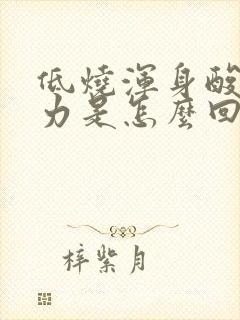 低燒渾身酸
力是怎麼回
梓紫月